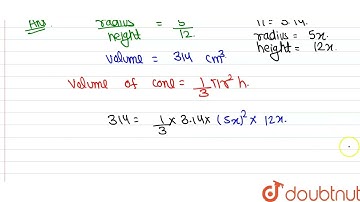 Ans. radius / height = 5 / 12.
π = 3.14.
radius = 5x.
height = 12x.
Volume = 314 cm³.
Volume of cone = 1/3 πr² h.
314 = 1/3 × 3.14 × (5x)² × 12x.
doubtnut